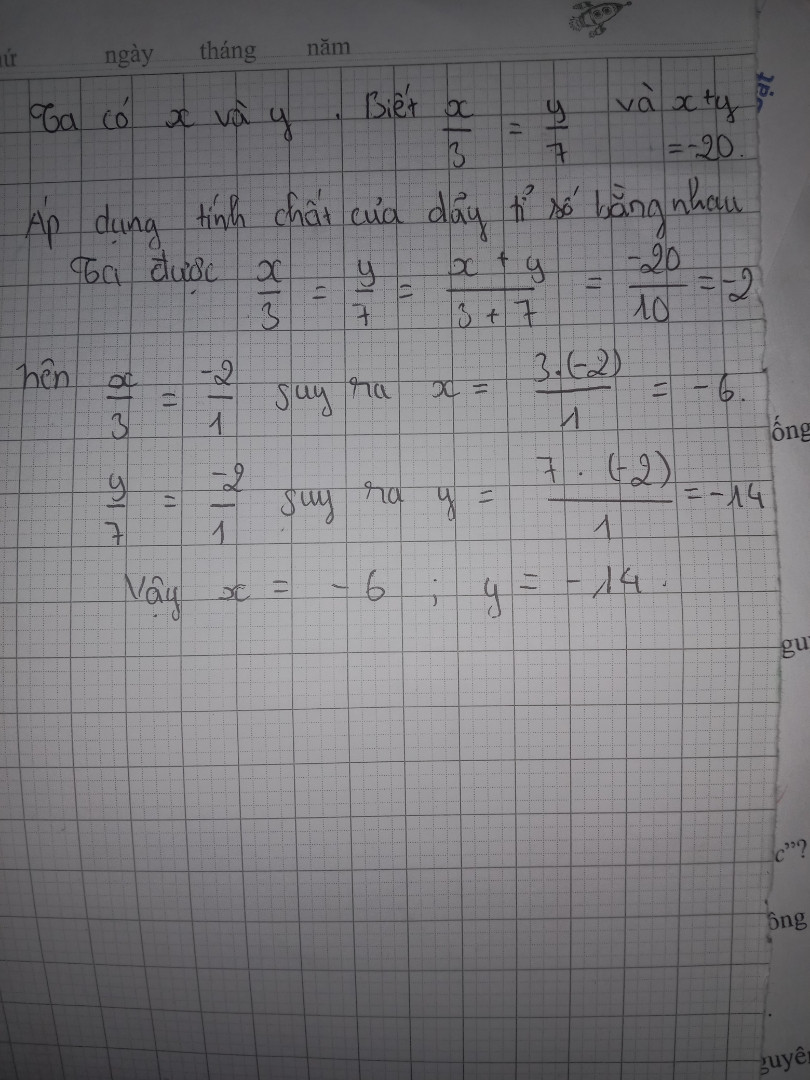 ứ ngày tháng năm
Ta có x và y. Biết x/3 = y/7 và x+y
= -20.
Áp dụng tính chất của dãy tỉ số bằng nhau
Ta được x/3 = y/7 = (x + y)/(3 + 7) = -20/10 = -2
nên x/3 = -2/1 suy ra x = 3.(-2)/1 = -6.
ống
y/7 = -2/1 suy ra y = 7.(-2)/1 = -14
Vậy x = -6 ; y = -14.
gu
c”?
ông
guyê